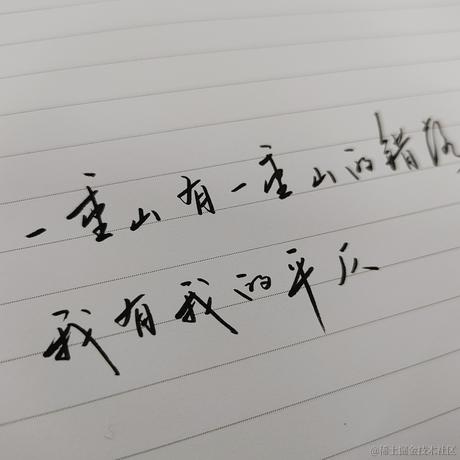 一重山有一重山的错落
我有我的平仄
@稀土掘金技术社区